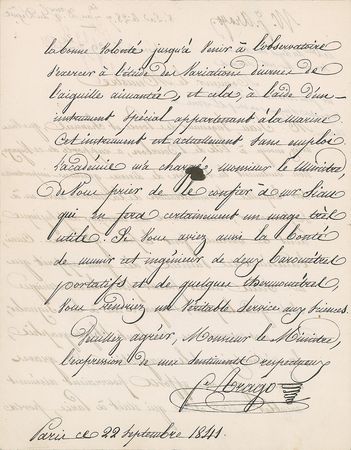 la bonne volonté jusqu'à venir à l'observatoire
s'exercer à l'étude des variations diurnes de
l'aiguille aimantée, et cela, à l'aide d'un
instrument spécial appartenant à la marine
Cet instrument est actuellement sans emploi
l'académie m'a chargé, Monsieur le Ministre,
de vous prier de le confier à mr Siau
qui en fera certainement un usage très
utile. Si vous aviez aussi la bonté
de munir cet ingénieur de deux baromètres
portatifs et de quelques thermomètres
vous rendriez un véritable service aux sciences.
Veuillez agréer, Monsieur le Ministre,
l'expression de mes sentiments respectueux
f. Arago
Paris ce 22 Septembre 1841.